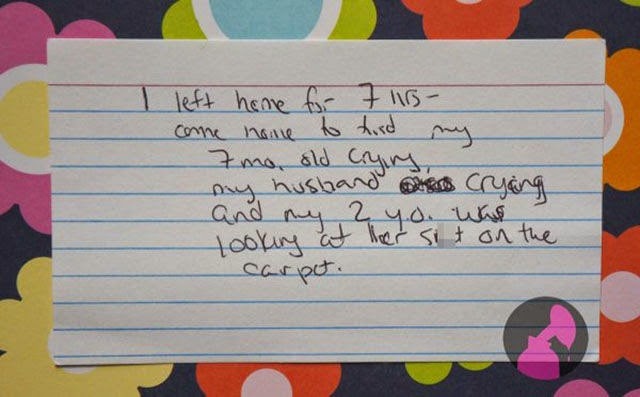 I left home for 7 hrs-
come home to find my
7 mo. old crying,
my husband crying
and my 2 y.o. was
looking at her s t on the
carpet.